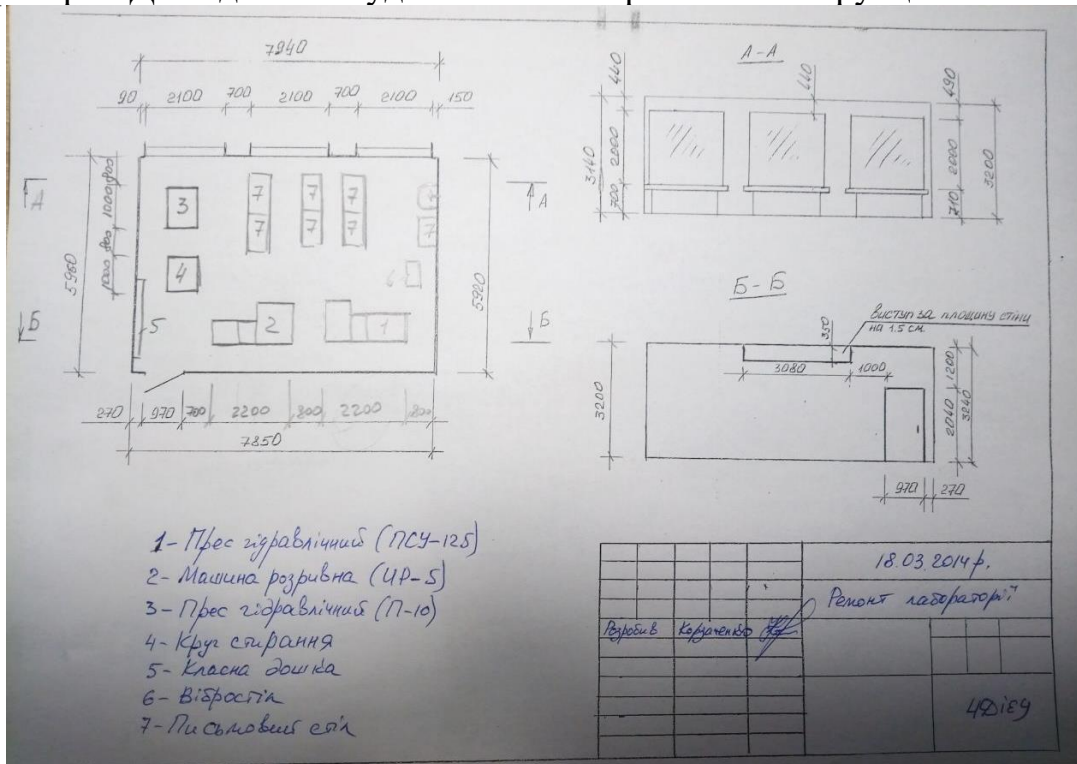 7940
90 2100 700 2100 700 2100 150
A
5960
1000 800 1000 800
3
4
5
7 7 7
7 7 7 7
6
2
1
5920
A
Б
Б
270 970 700 2200 800 2200 800
7850
А-А
440
2000
700
3140
440
490
2000
710
3200
Б-Б
Виступ за площину стіни
на 1.5 см
350
3080 1000
3200
1200
2040
3240
970 270
1- Прес гідравлічний (ПСУ-125)
2- Машина розривна (ИР-5)
3- Прес гідравлічний (П-10)
4- Круг стирання
5- Класна дошка
6- Вібростіл
7- Письмовий стіл
18.03.2014р.
Ремонт лабораторії
Розробив